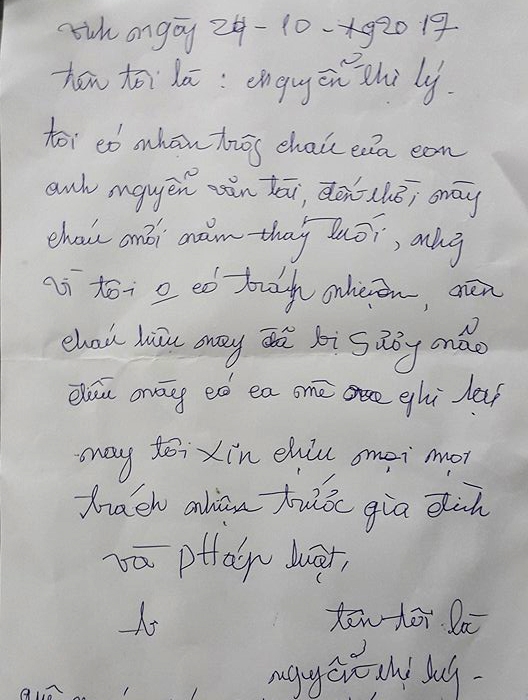 vinh ngày 24 - 10 - 2017
tên tôi là : nguyễn thị lý.
tôi có nhận trôg cháu của con
anh nguyễn văn tài, đến thời này
cháu mới năm tháy tuổi, nhg
vì tôi o có trách nhiệm, nên
cháu hiệu nay đã bị Sưởy não
điều này có ca mê ghi lại
nay tôi xin chịu mọi mọi
trách nhiệm trước gia đình
và pHáp luật,
tên tôi là
nguyễn thị lý -